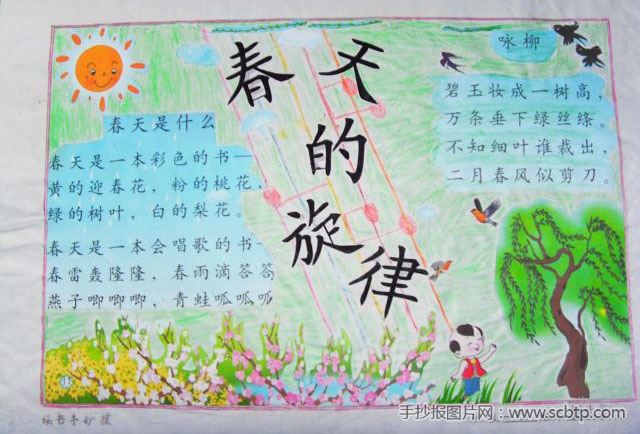 春天的旋律
春天是什么
春天是一本彩色的书—
黄的迎春花，粉的桃花，
绿的树叶，白的梨花。
春天是一本会唱歌的书—
春雷轰隆隆，春雨滴答答
燕子唧唧唧，青蛙呱呱呱
咏柳
碧玉妆成一树高，
万条垂下绿丝绦。
不知细叶谁裁出，
二月春风似剪刀。
手抄报图片网：www.scbtp.com